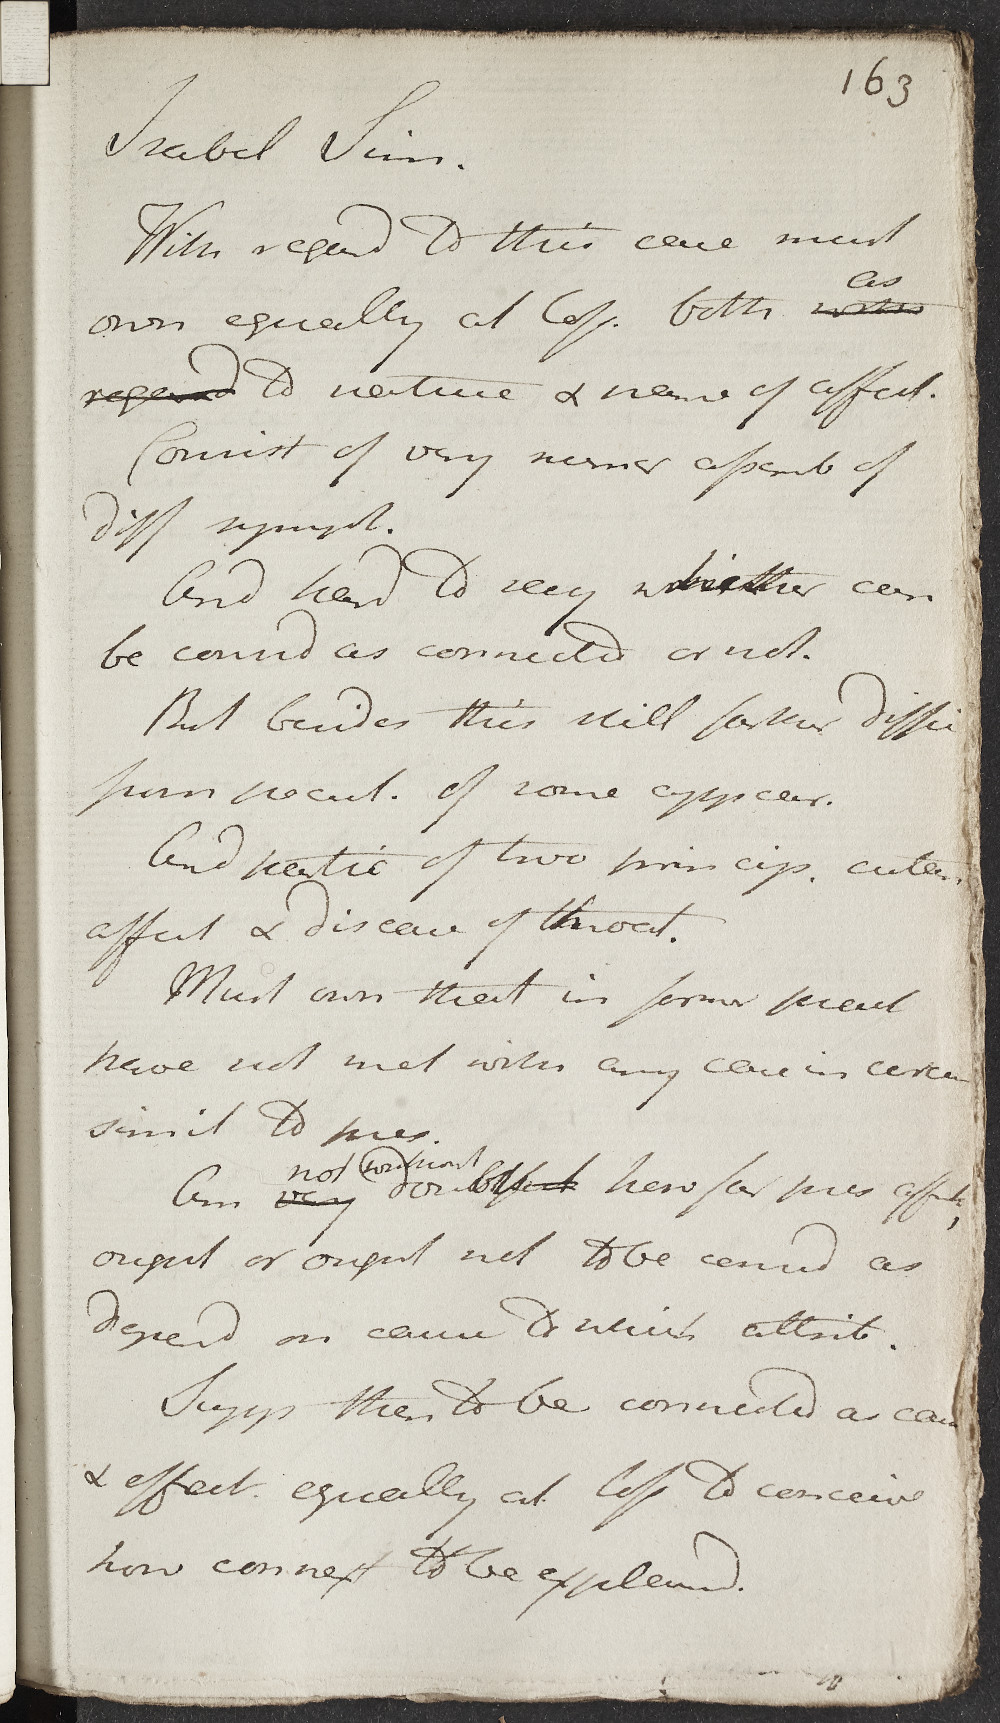 163
Isabel Sim.
With regard to this case must
own equally at loss. both as with
regard to nature & name of affect.
Consist of very numer assemb of
diff sympt.
And hard to say whether can
be consid as connected or not.
But besides this still farther diffic
from pecul. of some appear.
And partic of two princip. cutan
affect & disease of throat.
Must own that in former pract
have not met with any case in
simil to pres.
Am not very without doubt how far pres affect,
ought or ought not to be consid as
depend on cause to which attrib.
Supp then to be connected as cau
& effect. equally at loss to conceive
how connext to be explained.